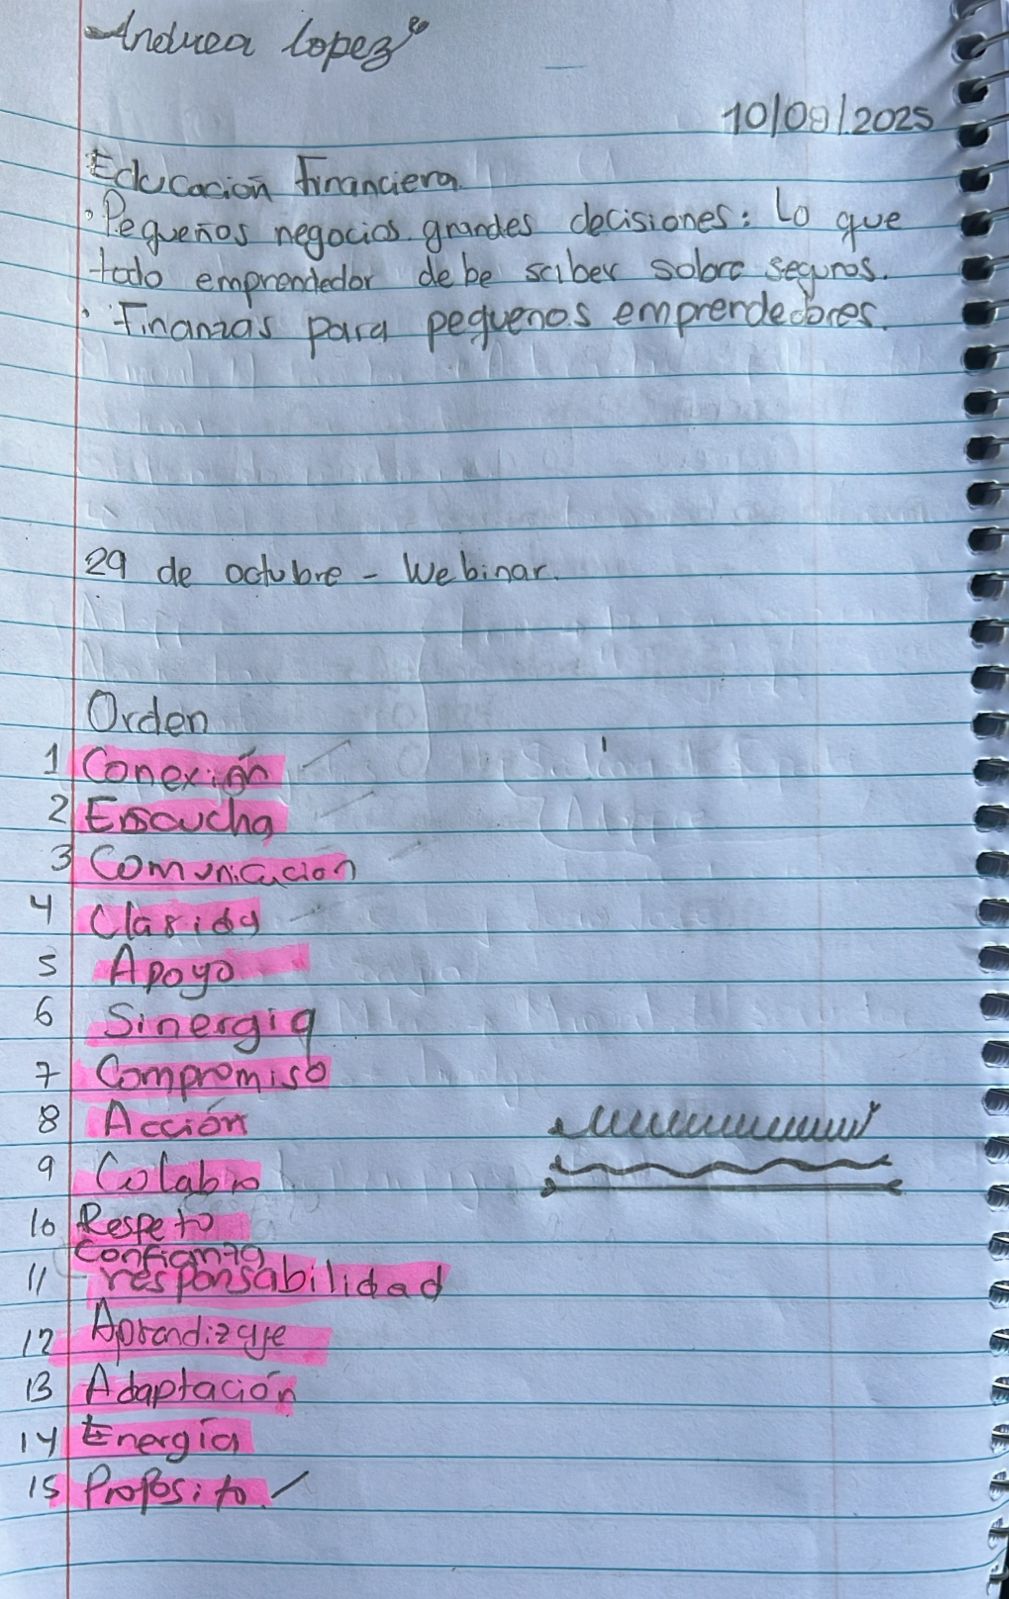 Andrea Lopez
10/09/2025
Educación Financiera
· Pequeños negocios. grandes decisiones: Lo que
todo emprendedor debe saber sobre seguros.
· Finanzas para pequeños emprendedores.
29 de octubre - Webinar.
Orden
1 Conexión
2 Escucha
3 Comunicación
4 Claridg
5 Apoyo
6 Sinergia
7 Compromiso
8 Acción
9 Colabro
10 Respeto
Confianza
11 - responsabilidad
12 Aprendizaje
13 Adaptación
14 Energía
15 Proposito.